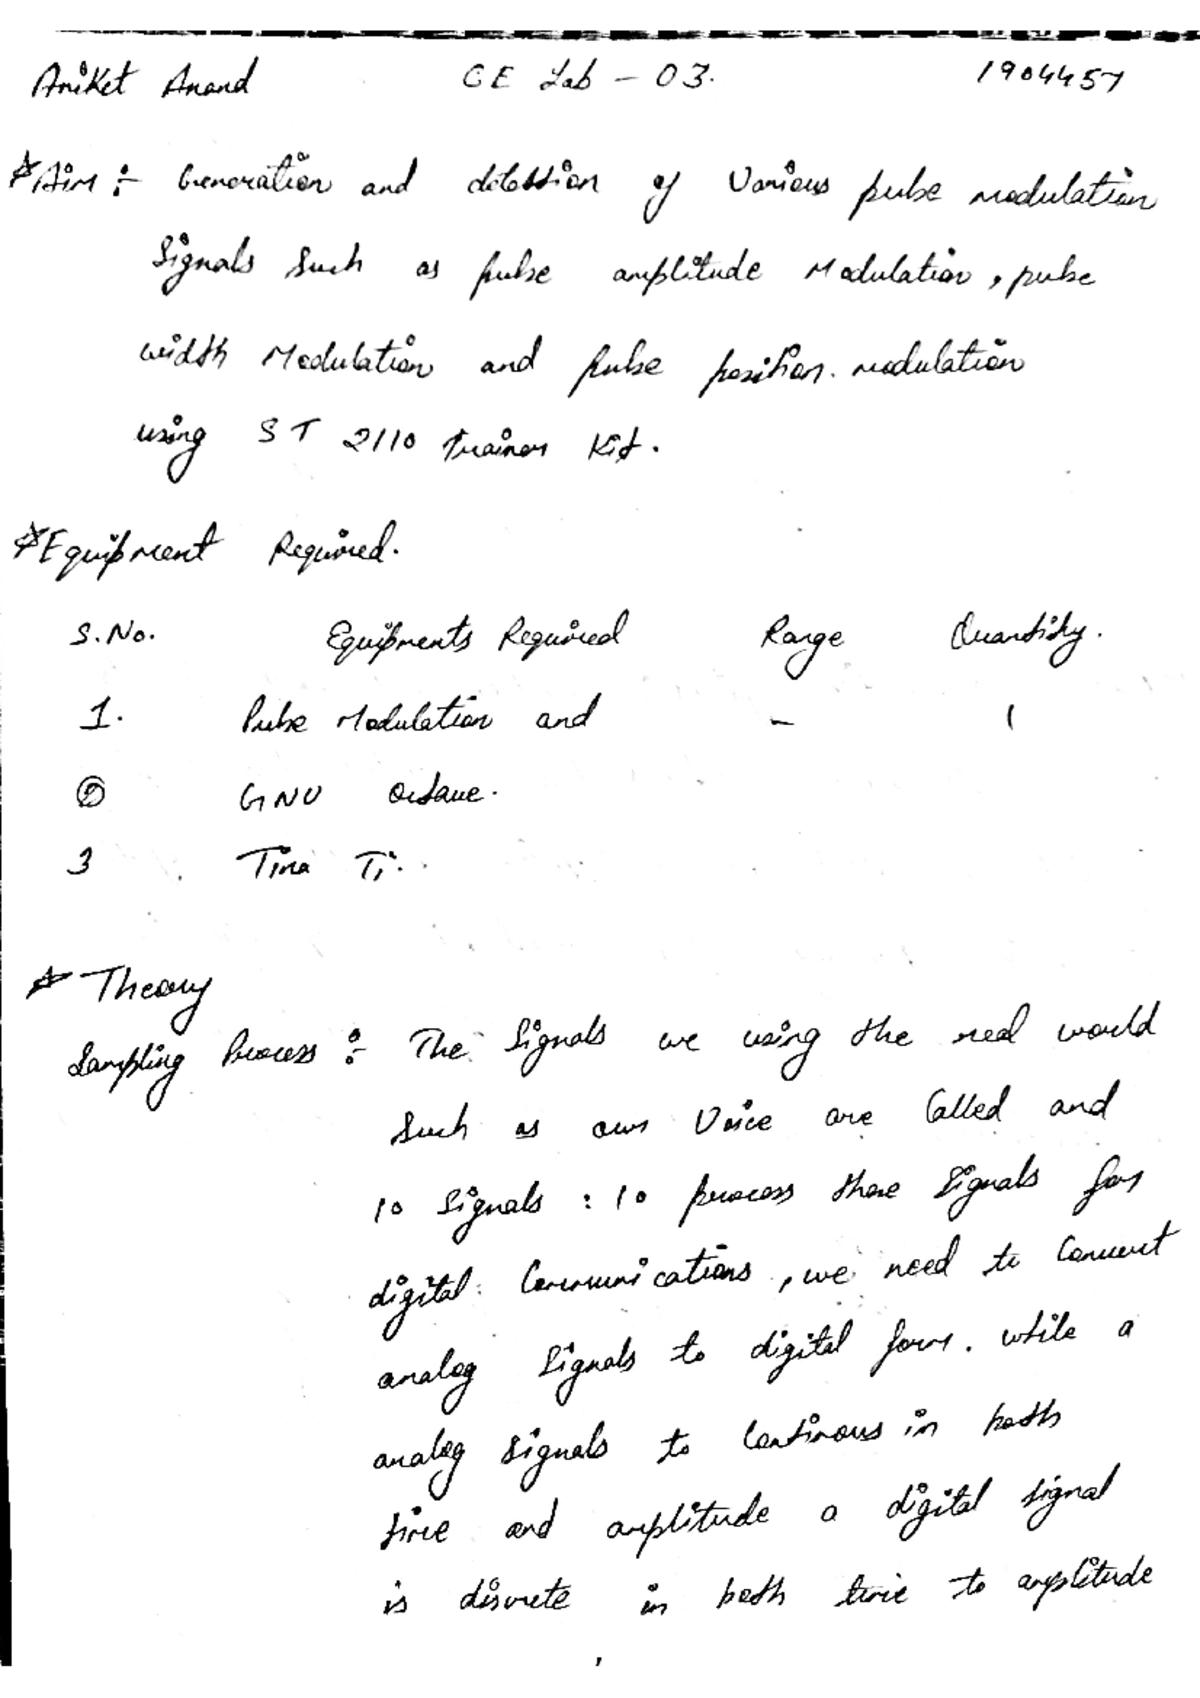 Aniket Anand CE Lab - 03. 1904457
*Aim :- Generation and detession of Various pulse modulation
Signals Such as pulse amplitude Modulation, pulse
width Modulation and pulse position. modulation
using ST 2110 trainer Kit.
*Equipment Required.
S.No. Equipments Required Range Quantity.
1. Pulse Modulation and - 1
② GNU Octave.
3 Tina Ti.
* Theory
Sampling Process :- The Signals we using the real world
Such as our Voice are Called and
10 Signals : 10 process these Signals for
digital. Communications, we need to Convert
analog Signals to digital form. while a
analog signals to Continous in both
time and amplitude a digital signal
is discrete in both time to amplitude